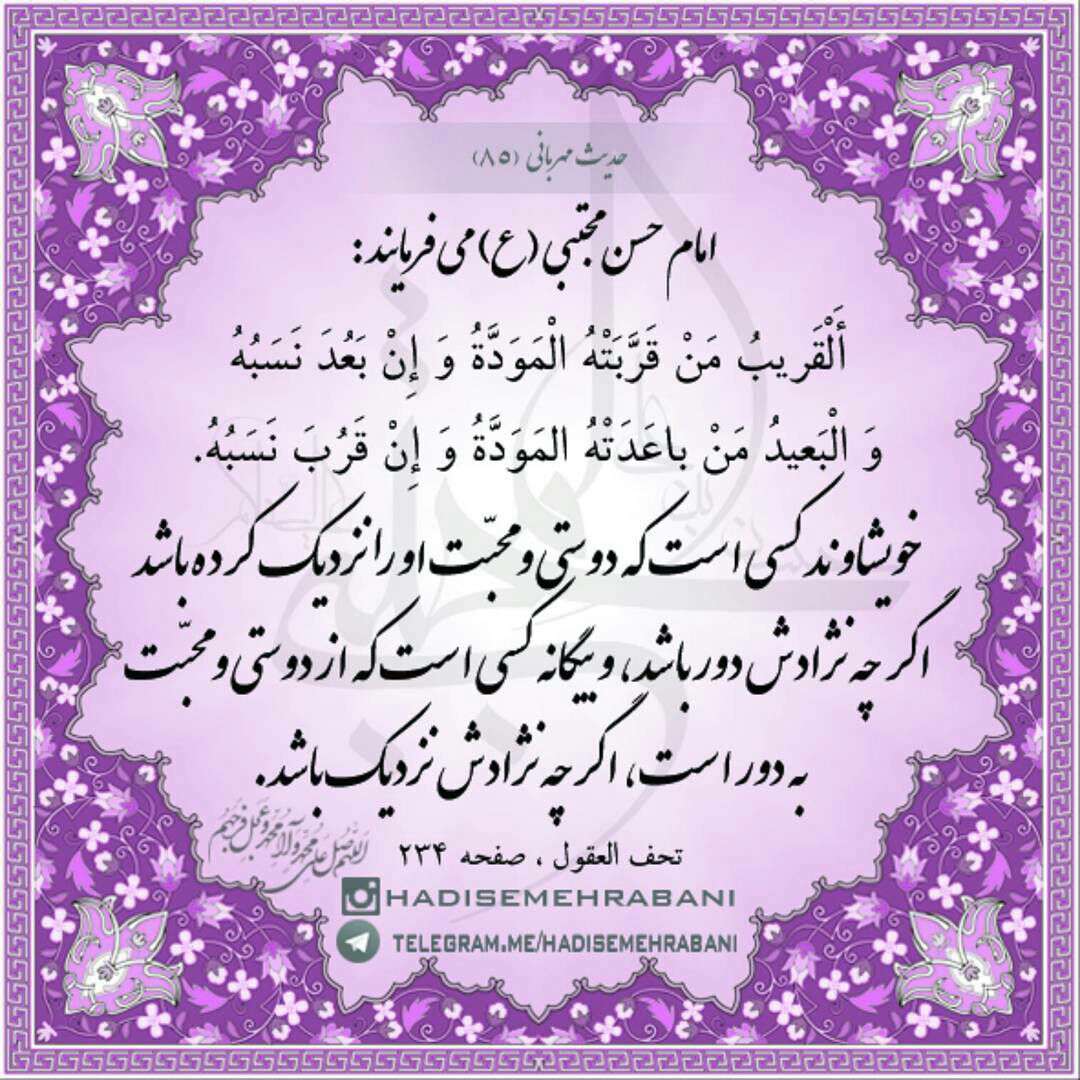 حدیث مهربانی (۸۵)
امام حسن مجتبی (ع) می فرمایند :
أَلْقَریبُ مَنْ قَرَّبَتْهُ الْمَوَدَّةُ وَ إِنْ بَعُدَ نَسَبُهُ
وَ الْبَعیدُ مَنْ باعَدَتْهُ المَوَدَّةُ وَ إِنْ قَرُبَ نَسَبُهُ.
خویشاوند کسی است که دوستی و محبّت او را نزدیک کرده باشد
اگر چه نژادش دور باشد، و بیگانه کسی است که از دوستی و محبّت
به دور است، اگر چه نژادش نزدیک باشد.
اللهم صل علی محمد و آل محمد و عجل فرجهم
تحف العقول ، صفحه ۲۳۴
HADISEMEHRABANI
TELEGRAM.ME/HADISEMEHRABANI